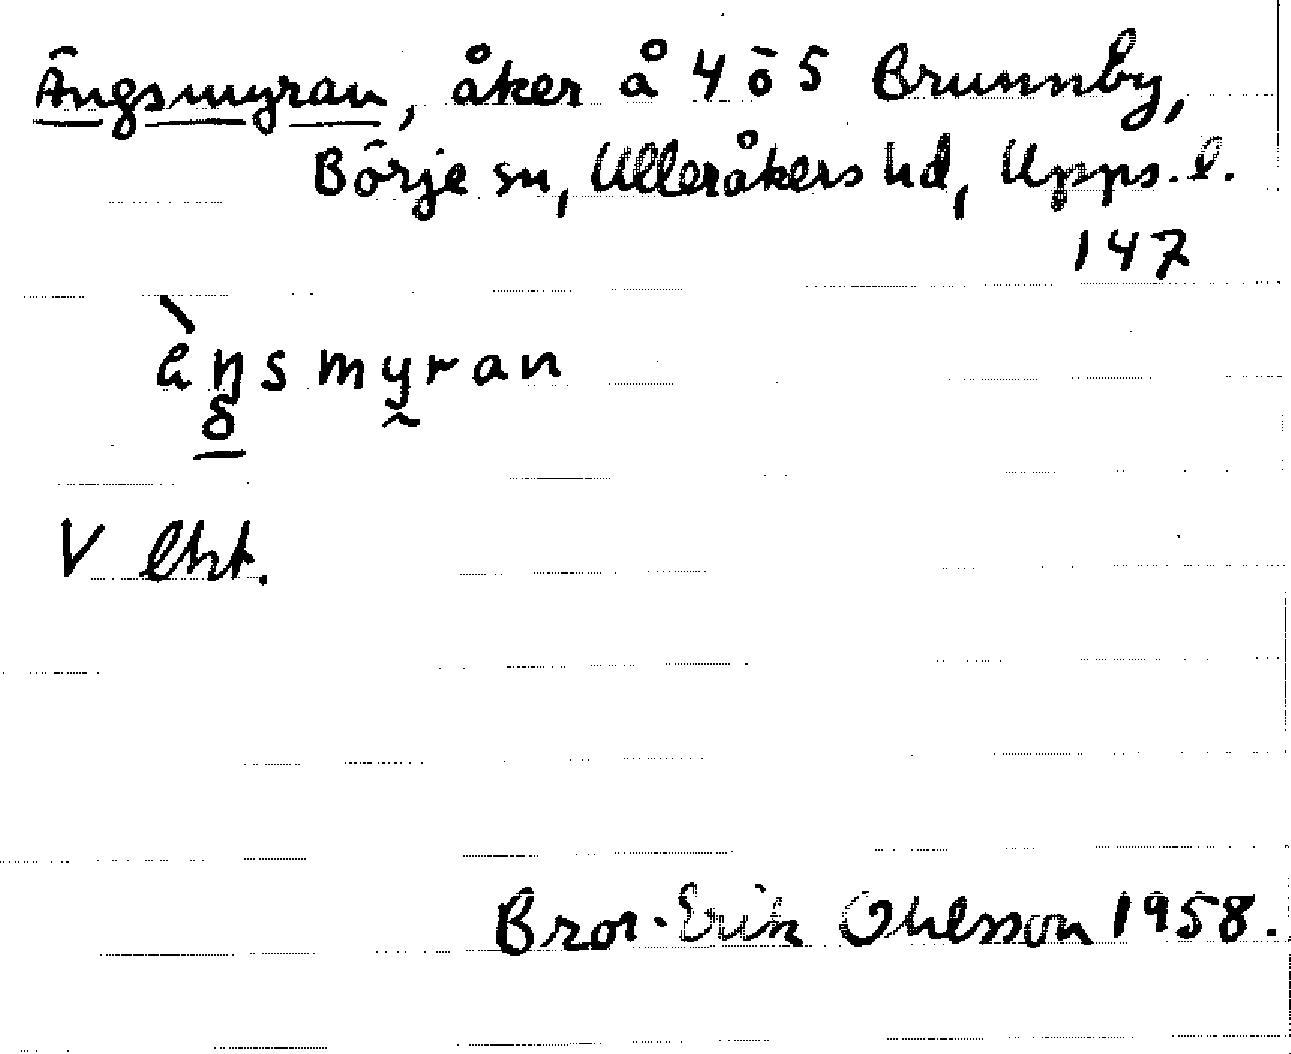 Ängsmyran, åker å 4 ō 5 Brunnby,
Börje sn, Ulleråkers hd, Upps. l.
147
èŋsmyran
V Ekt.
Bror-Erik Ohlsson 1958.